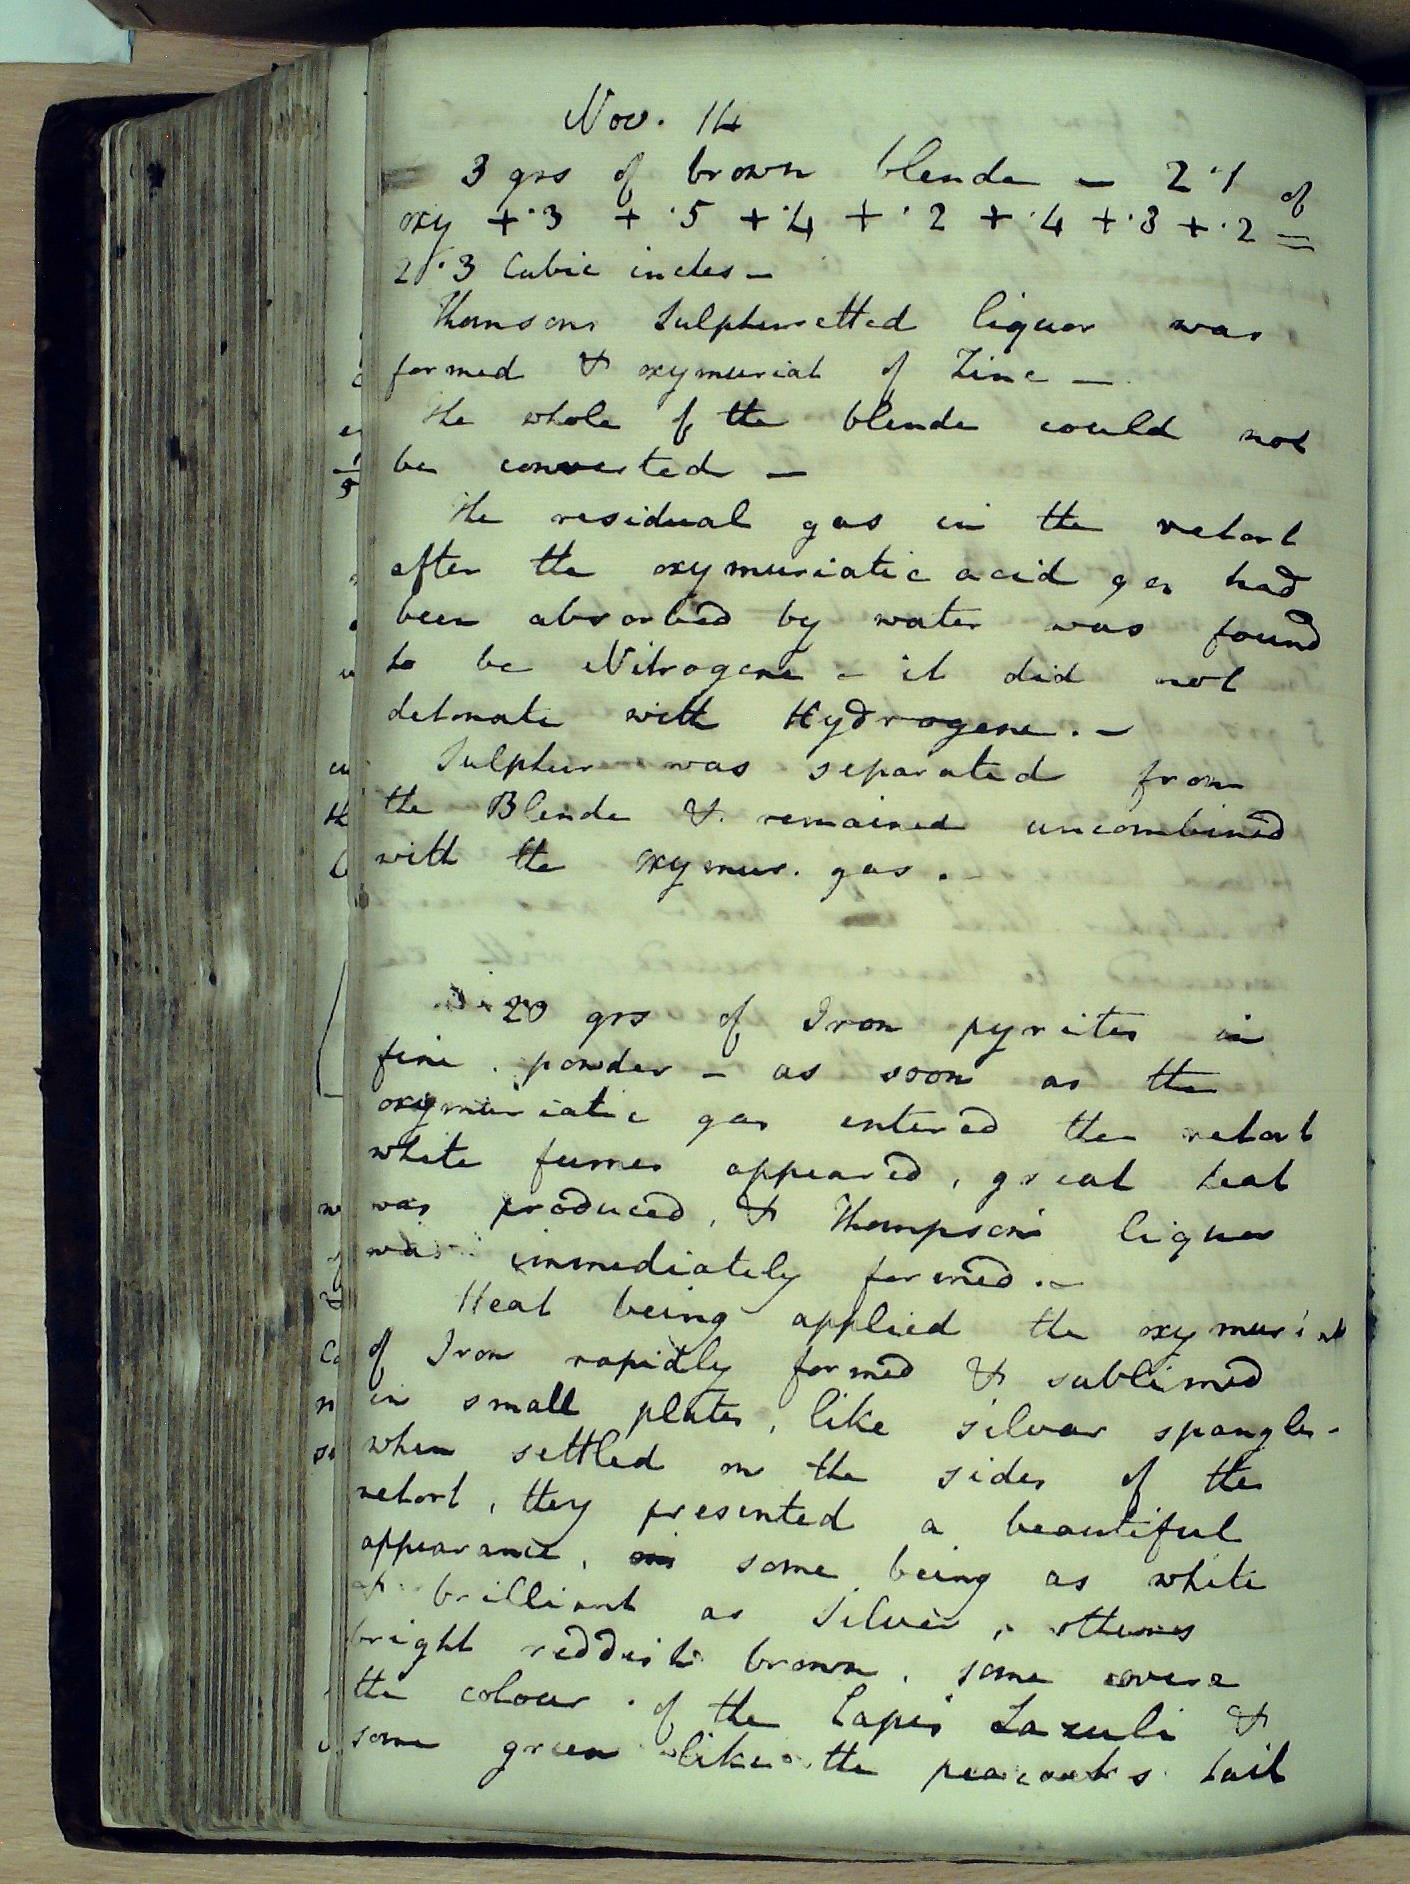 Nov. 14
3 grs of brown blende - 2·1 of
oxy + ·3 + ·5 + ·4 + ·2 + ·4 + ·3 + ·2 =
2·3 Cubic inches -
Thomsons Sulphuretted liquor was
formed & oxymuriat of Zinc -
The whole of the blende could not
be converted -
The residual gas in the retort
after the oxymuriatic acid gas had
been absorbed by water was found
to be Nitrogene - it did not
detonate with Hydrogene. -
Sulphur was separated from
the Blende & remained uncombined
with the oxymur. gas. -
20 grs of Iron pyrites in
fine powder - as soon as the
oxymuriatic gas entered the retort
white fumes appeared, great heat
was produced, & Thompson's liquor
was immediately formed. -
Heat being applied the oxymuriat
of Iron rapidly formed & sublimed
in small plates, like silver spangles -
when settled on the sides of the
retort, they presented a beautiful
appearance, some being as white
& brilliant as silver, others
bright reddish brown, some were
the colour of the Lapis Lazuli &
some green like the peacocks tail